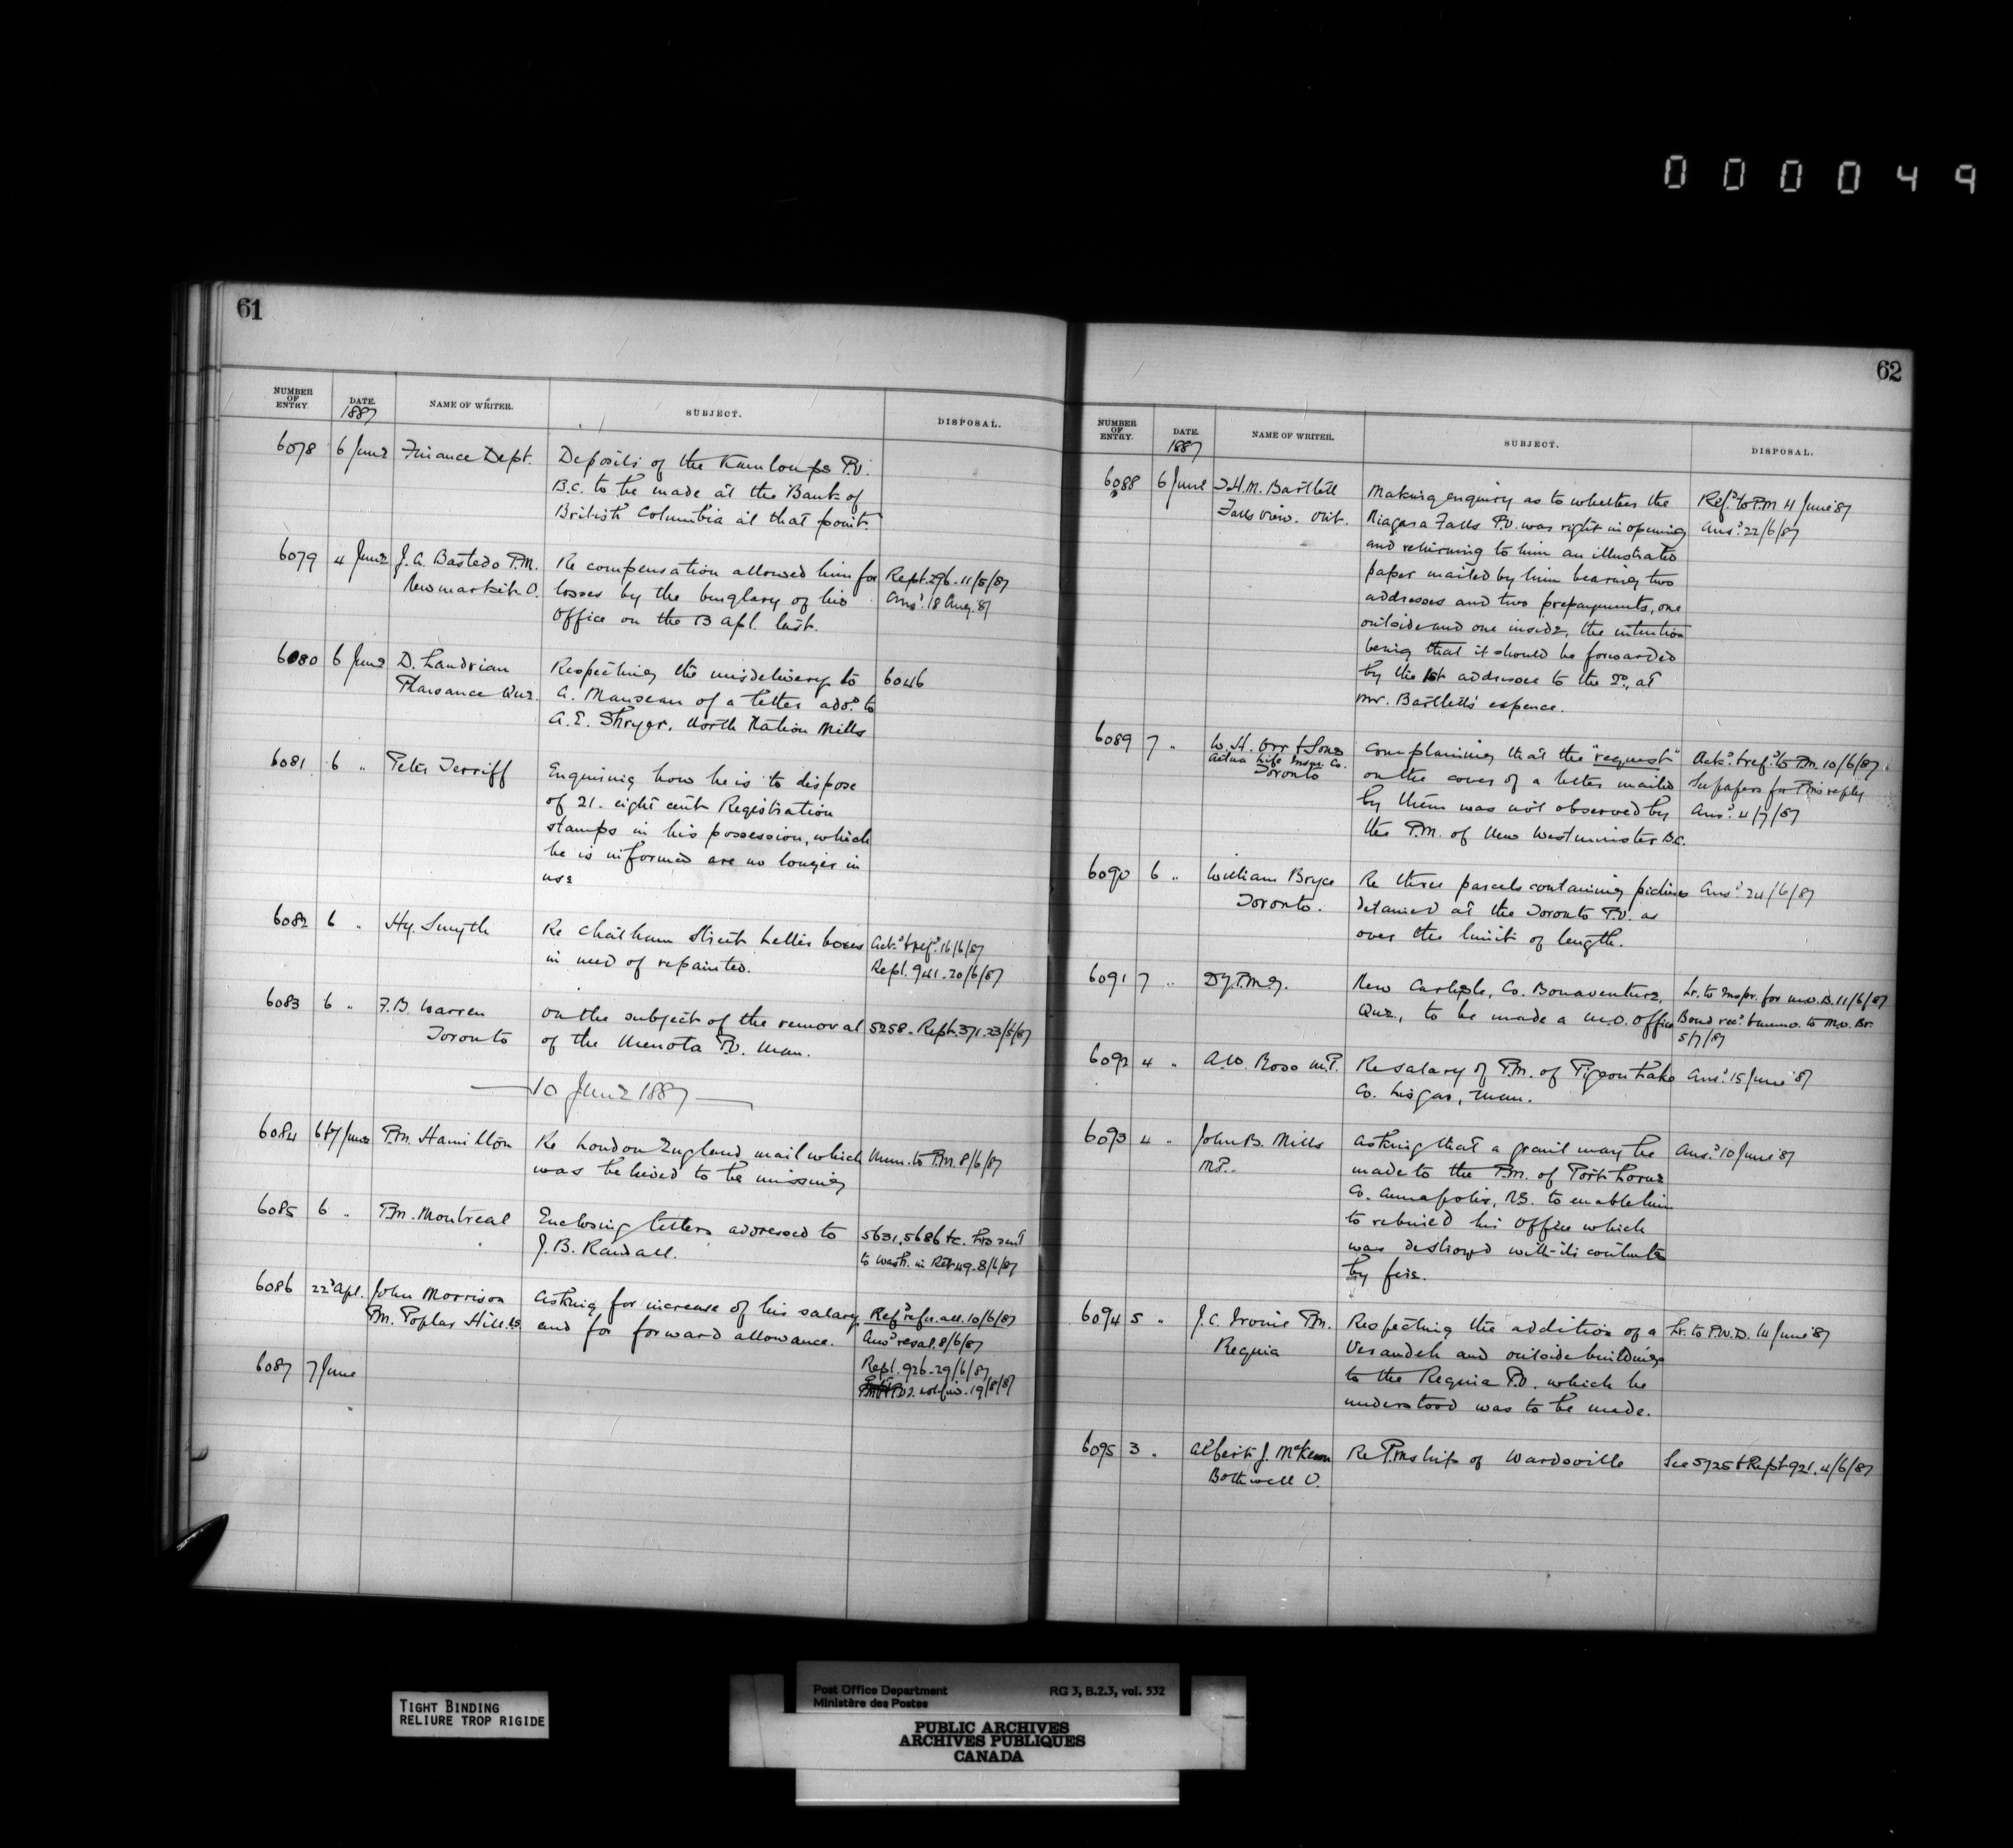 000049
61
NUMBER OF ENTRY DATE. NAME OF WRITER. SUBJECT. DISPOSAL.
1887
6078 6 June Finance Dept. Deposits of the Kamloops P.O.
B.C. to be made at the Bank of
British Columbia at that point.
6079 4 June J. A. Bastedo P.M. Re compensation allowed him for Rept. 296 - 11/5/87
Newmarket O. losses by the burglary of his Ansd. 18 Aug. 87
Office on the 13 Apl. last.
6080 6 June D. Landrian Respecting the misdelivery to 6046
Plaisance Que. A. Manseau of a letter addd. to
A. E. Shryer, North Nation Mills
6081 6 " Peter Terriff Enquiring how he is to dispose
of 21. eight cent Registration
stamps in his possession, which
he is informed are no longer in
use
6082 6 " Hy. Smyth Re Chatham Street Letter boxes Ackd. & refd. 16/6/87
in need of repainted. Rept. 941 - 20/6/87
6083 6 " F. B. Warren on the subject of the removal 5258 - Rept. 371 - 23/5/87
Toronto of the Menota P.O. Man.
10 June 1887
6084 6&7 June P.M. Hamilton Re London England mail which Mem. to P.M. 8/6/87
was believed to be missing
6085 6 " P.M. Montreal Enclosing letters addressed to 5631, 5686 &c. Lrs sent
J. B. Randall. to Wash. in Ret 49 - 8/6/87
6086 22d Apl. John Morrison Asking for increase of his salary Refd. re for. all. 10/6/87
P.M. Poplar Hill. and for forward allowance. Ansd. re sal. 8/6/87
6087 7 June Rept. 926 - 29/6/87
19/8/87
62
NUMBER OF ENTRY. DATE. NAME OF WRITER. SUBJECT. DISPOSAL.
1887
6088 6 June J. H. M. Bartlett Making enquiry as to whether the Refd. to P.M 4 June '87
Falls View. Ont. Niagara Falls P.O. was right in opening Ansd. 22/6/87
and returning to him an illustrated
paper mailed by him bearing two
addresses and two prepayments, one
outside and one inside, the intention
being that it should be forwarded
by the 1st addressee to the 2d, at
Mr. Bartlett's expence.
6089 7 " W. H. Orr & Sons Complaining that the "request" Ackd. & refd. to P.M. 10/6/87
Aetna Life Insur. Co. on the cover of a letter mailed See papers for P.M.s reply
Toronto by them was not observed by Ansd. 4/7/87
the P.M. of New Westminister B.C.
6090 6 " William Bryce Re three parcels containing pictures Ansd. 24/6/87
Toronto. detained at the Toronto P.O. as
over the limit of length.
6091 7 " Dy. P.M.G. New Carlisle, Co. Bonaventure, Lr. to Inspr. for M.O.B. 11/6/87
Que., to be made a M.O. Office Bond recd. & memo. to M.O. Br.
5/7/87
6092 4 " A. W. Ross M.P. Re salary of P.M. of Pigeon Lake Ansd. 15 June '87
Co. Lisgar, Man.
6093 4 " John B. Mills Asking that a grant may be Ansd. 10 June '87
M.P. made to the P.M. of Port Lorne
Co. Annapolis, N.S. to enable him
to rebuild his Office which
was destroyed with its contents
by fire.
6094 5 " J. C. Irvine P.M. Respecting the addition of a Lr. to P.W.D. 14 June '87
Regina Verandeh and outside buildings
to the Regina P.O. which he
understood was to be made.
6095 3 " Albert J. McKeown Re P.M.ship of Wardsville See 5725 & Rept 921. 4/6/87
Bothwell O.
TIGHT BINDING
RELIURE TROP RIGIDE
Post Office Department RG 3, B.2.3, vol. 532
Ministère des Postes
PUBLIC ARCHIVES
ARCHIVES PUBLIQUES
CANADA